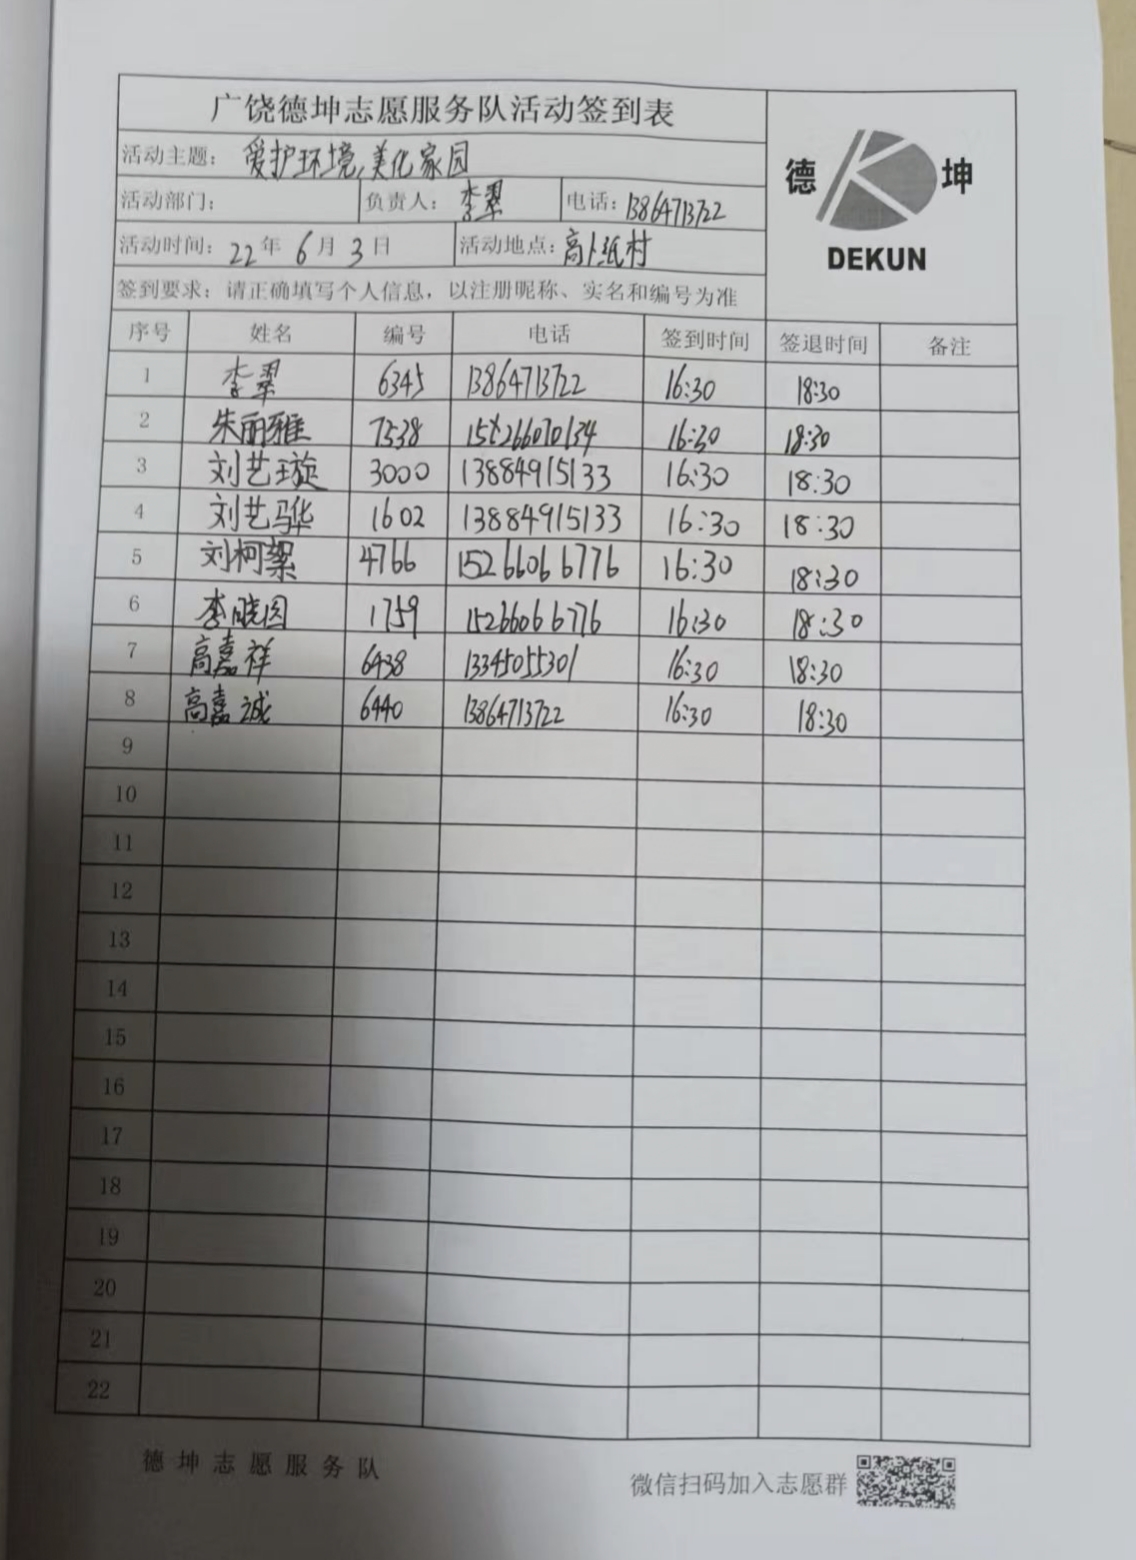 广饶德坤志愿服务队活动签到表
德 坤
DEKUN
活动主题： 爱护环境,美化家园
活动部门： 负责人：李翠 电话：13864713722
活动时间：22年 6月 3日 活动地点：高卜纸村
签到要求：请正确填写个人信息，以注册昵称、实名和编号为准
序号 姓名 编号 电话 签到时间 签退时间 备注
1 李翠 6345 13864713722 16:30 18:30
2 朱丽雅 7538 16:30 18:30
3 刘艺璇 3000 13884915133 16:30 18:30
4 刘艺骅 1602 13884915133 16:30 18:30
5 刘柯絮 4766 15266066776 16:30 18:30
6 李晓园 1759 15266066776 16:30 18:30
7 高嘉祥 6438 13345055301 16:30 18:30
8 高嘉诚 6440 13864713722 16:30 18:30
9
10
11
12
13
14
15
16
17
18
19
20
21
22
德坤志愿服务队
微信扫码加入志愿群